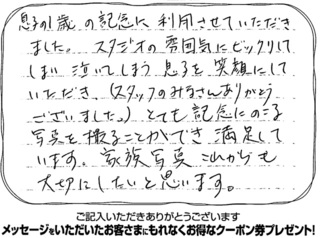 息子の1歳の記念に利用させていただき
ました。スタジオの雰囲気にビックリして
しまい泣いてしまう息子を笑顔にして
いただき、(スタッフのみなさんありがとう
ございました。)とても記念にのこる
写真を撮ることができ満足して
います。家族写真これからも
大切にしたいと思います。
ご記入いただきありがとうございます
メッセージをいただいたお客さまにもれなくお得なクーポン券プレゼント!